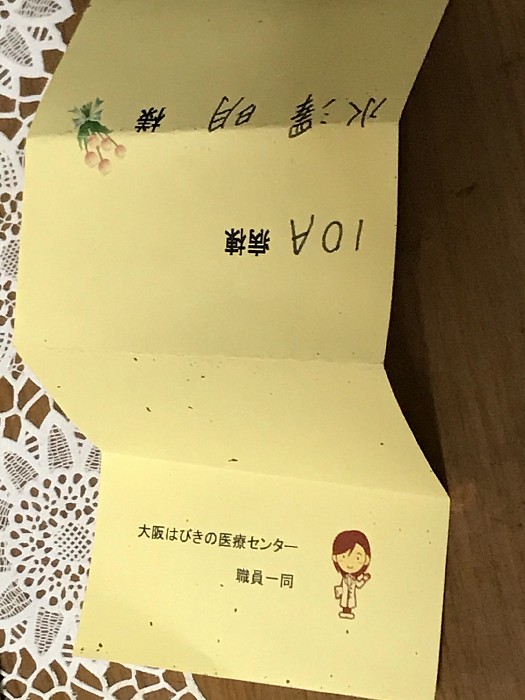 10A 病棟
水澤 明 様
大阪はびきの医療センター
職員一同